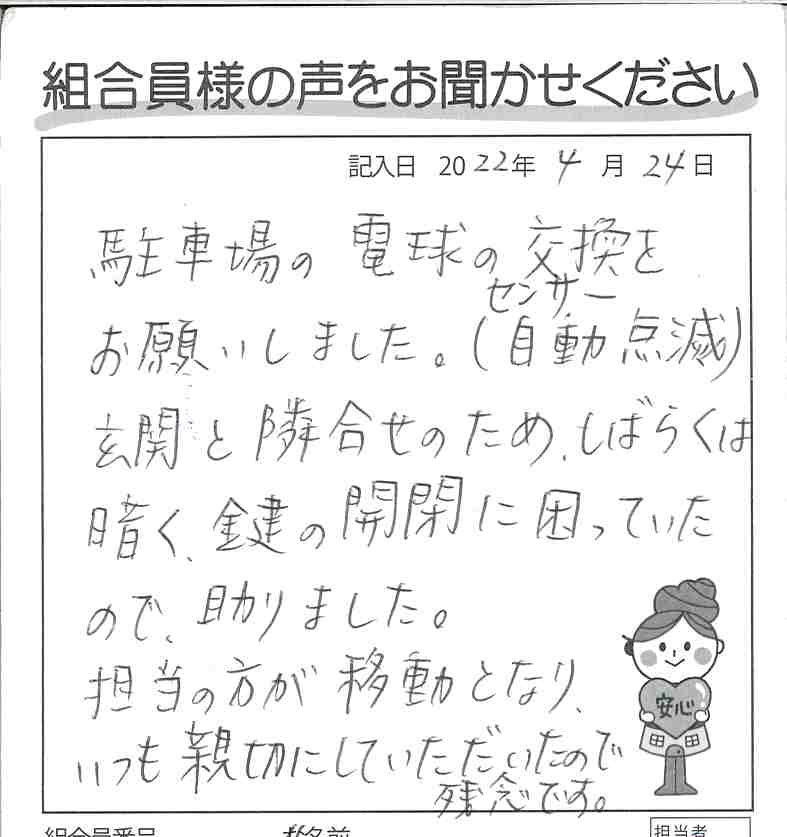 組合員様の声をお聞かせください
記入日 2022年 4月 24日
駐車場の電球の交換を
センサー
お願いしました。(自動点滅)
玄関と隣合せのため、しばらくは
暗く、鍵の開閉に困っていた
ので、助りました。
担当の方が移動となり、
いつも親切にしていただいたので
残念です。
安心
組合員番号
お名前
担当者